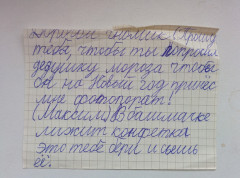 гномик (Прошу
тебя, чтобы ты попросил
дедушку мороза чтобы
он на Новый год принёс
мне фотопорат!
(Максим) В башмачке
лижит конфетка
это тебе бери и сьешь
её.